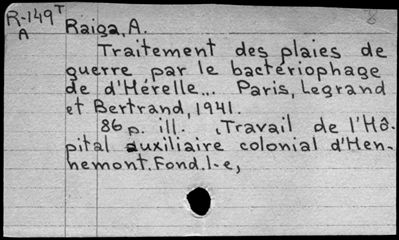 R-149T
A
Raiga, A.
Traitement des plaies de
guerre par le bactériophage
de d'Hérelle... Paris, Legrand
et Bertrand, 1941.
86 p. ill. (Travail de l'Hô-
pital auxiliaire colonial d'Hen-
nemont. Fond. 1-e,